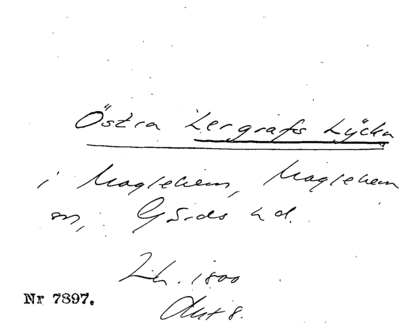 Östra Lergrafs Lycka
i Maglehem, Maglehem
sn, Gärds hd.
Lh. 1800
Akt 8.
Nr 7897.